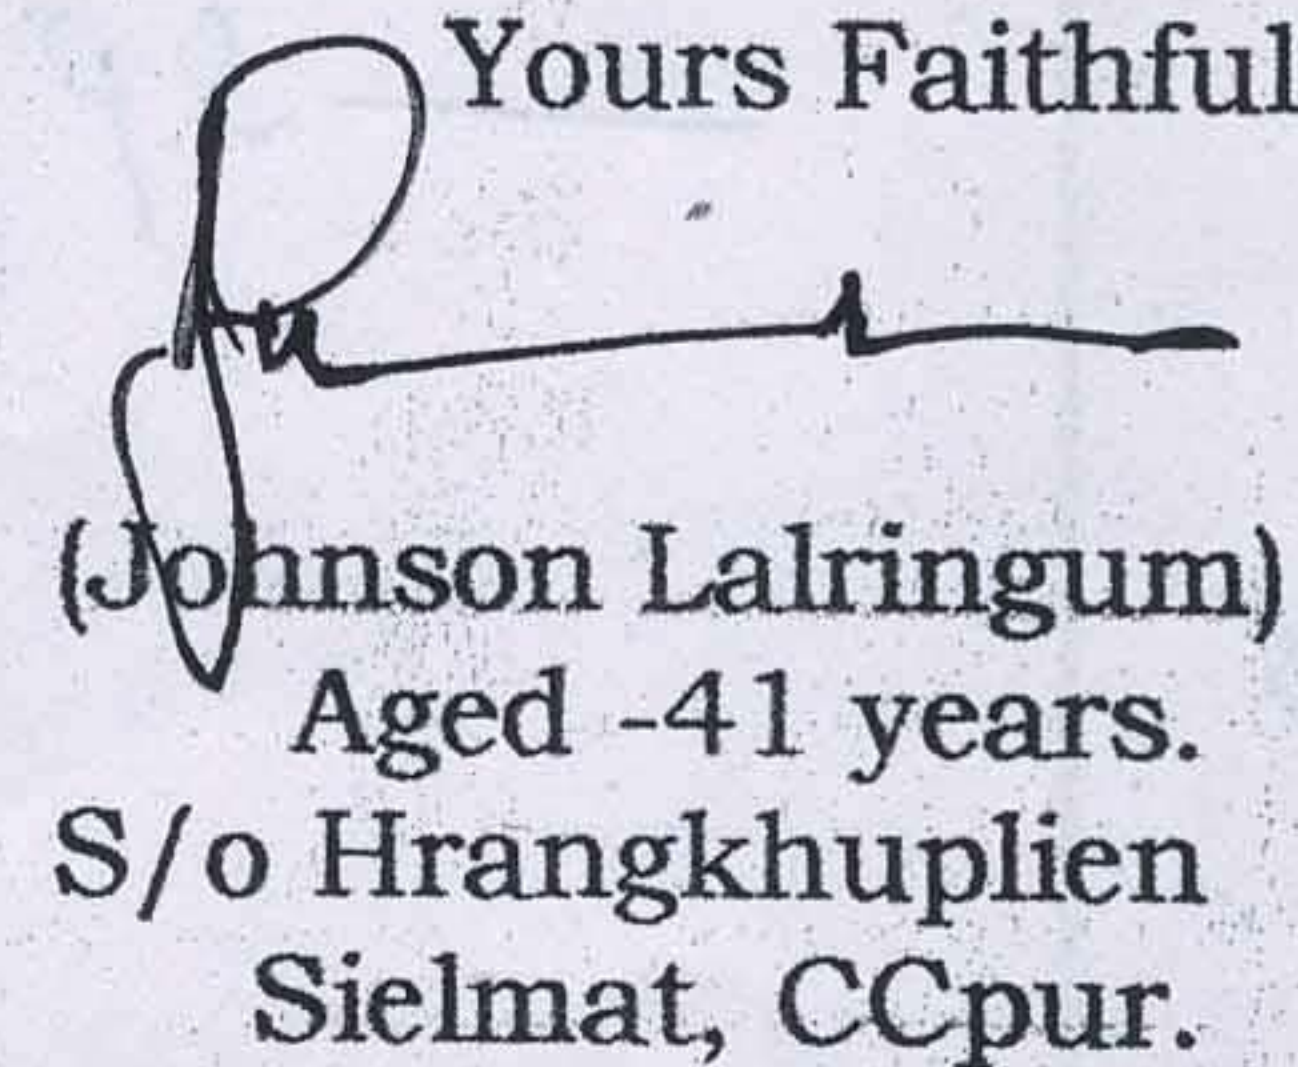 Yours Faithful
(Johnson Lalringum)
Aged -41 years.
S/o Hrangkhuplien
Sielmat, CCpur.